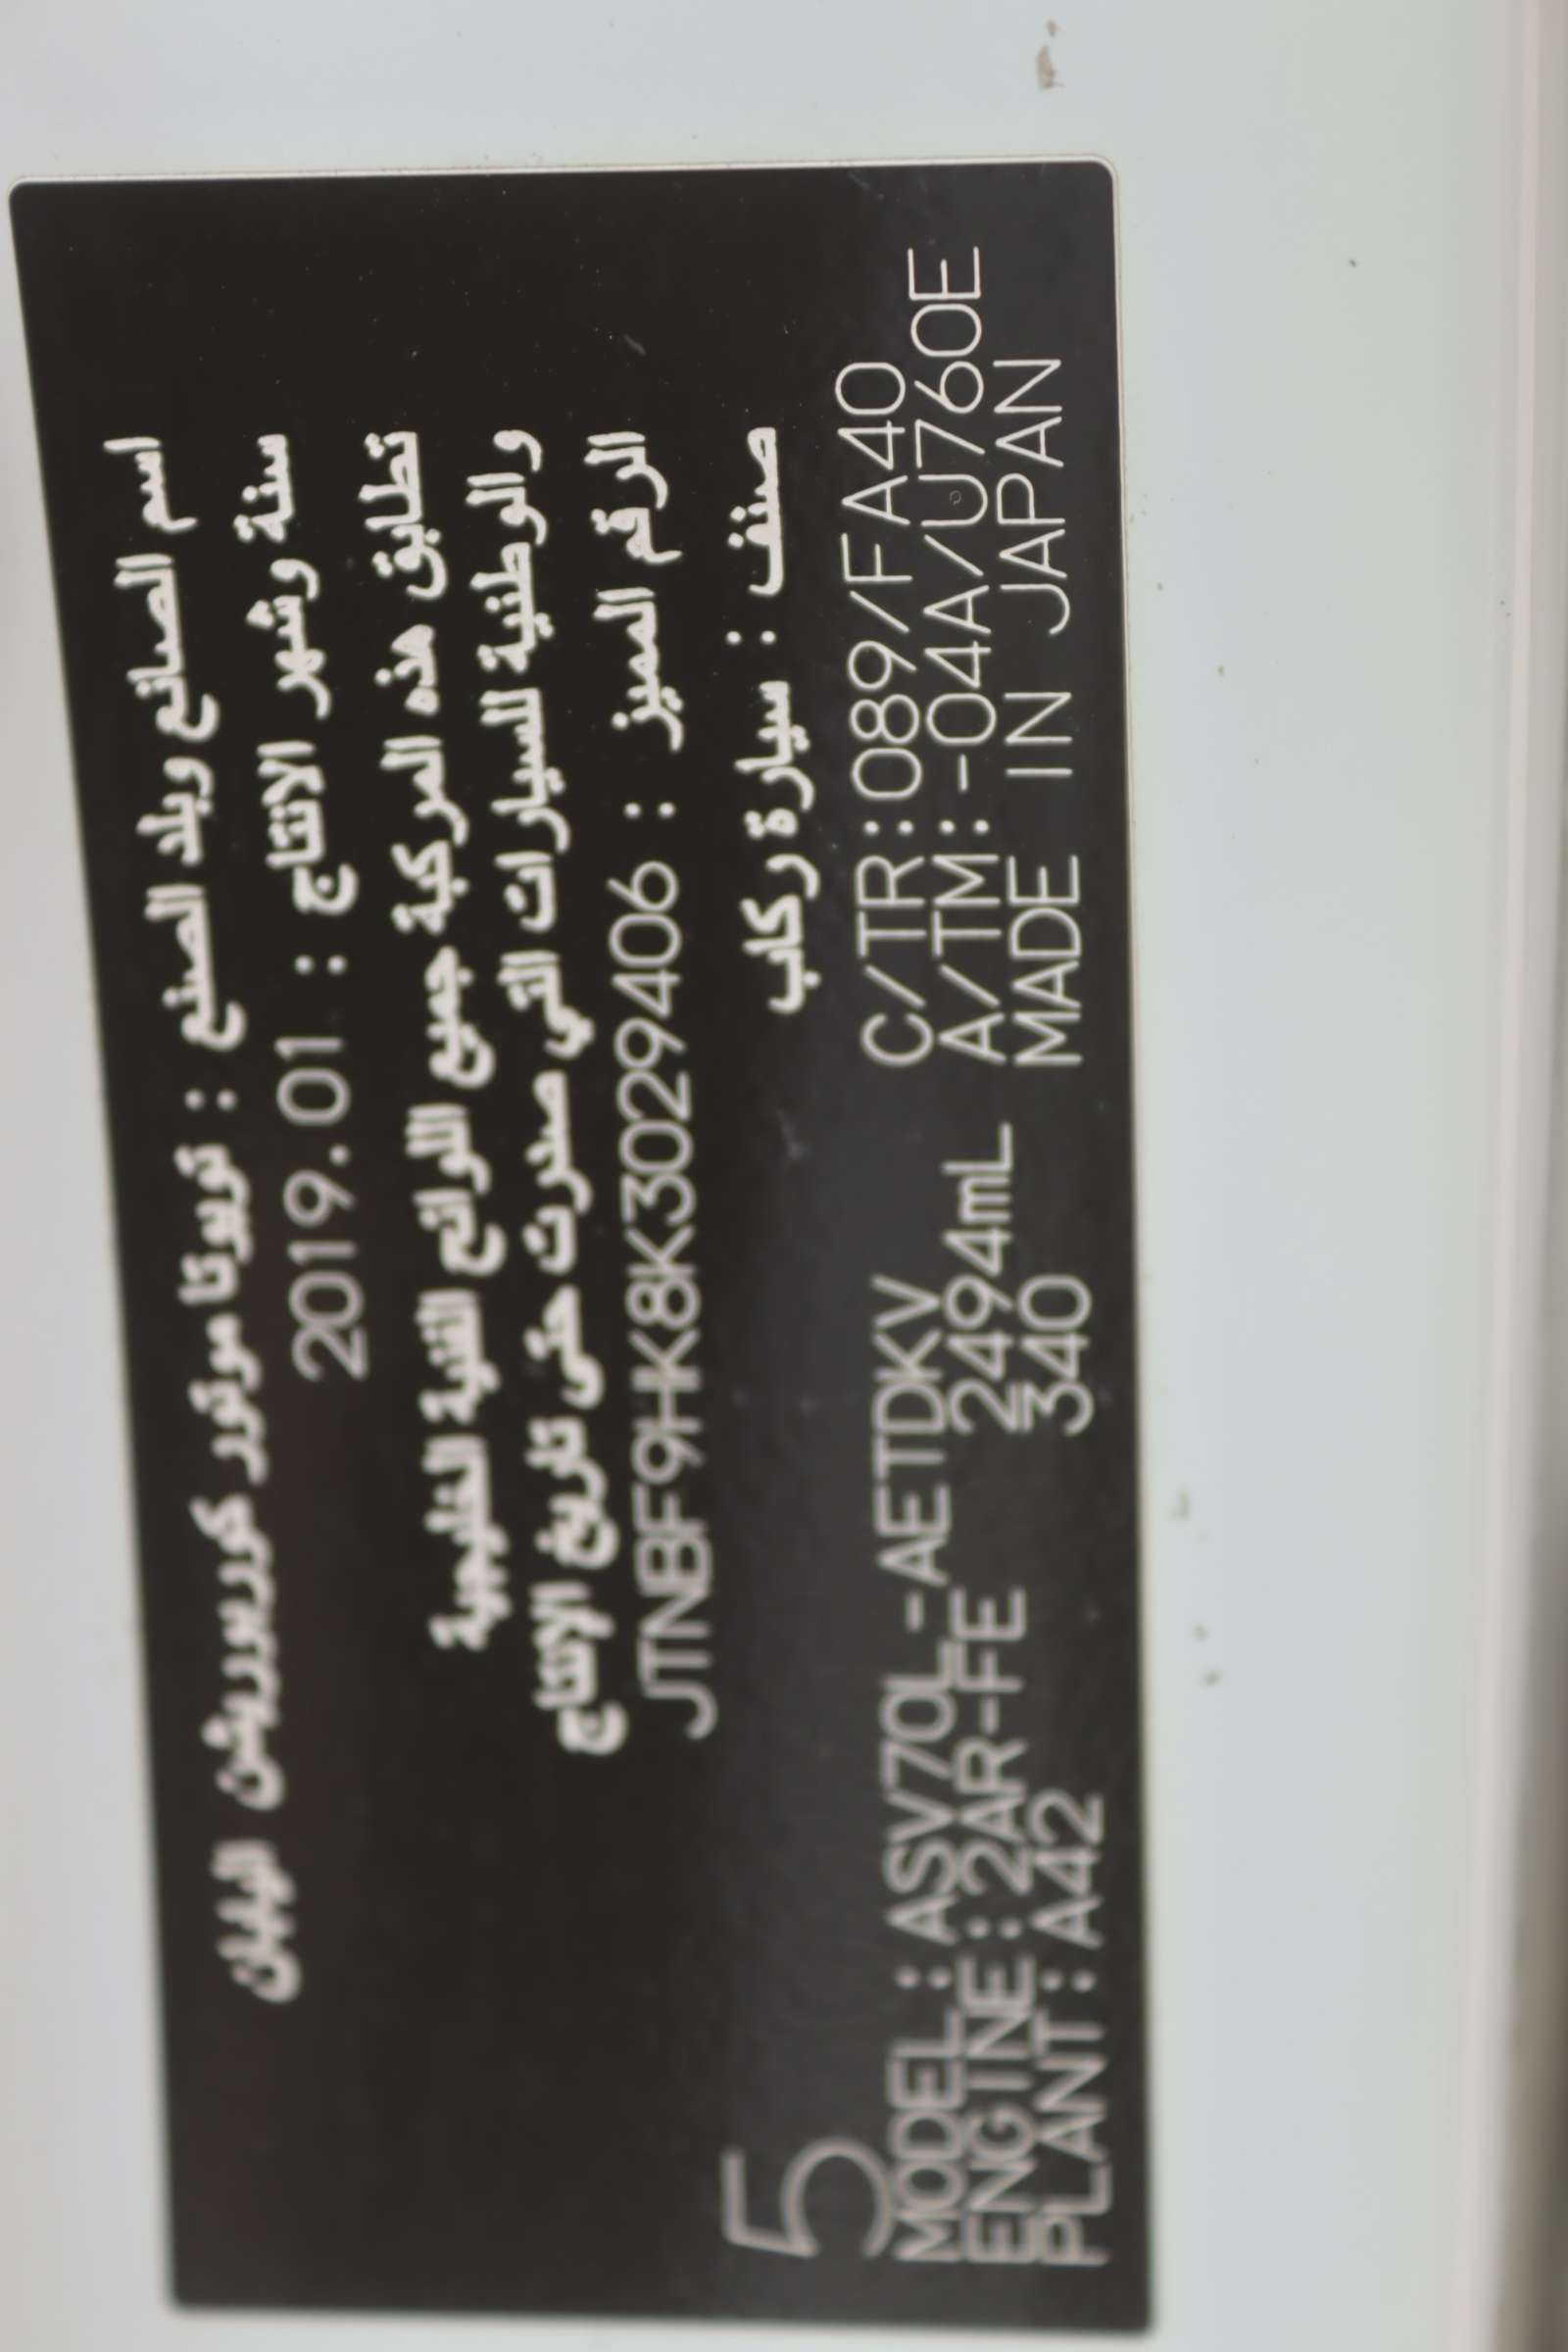 اسم الصانع وبلد الصنع : تويوتا موتور كوربوريشن اليابان
سنة وشهر الانتاج : 2019.01
تطابق هذه المركبة جميع اللوائح الفنية الخليجية
والوطنية للسيارات التي صدرت حتى تاريخ الانتاج
الرقم المميز : JTNBF9HK8K3029406
صنف : سيارة ركاب
5
MODEL : ASV70L-AETDKV C/TR:089/FA40
ENGINE:2AR-FE 2494mL A/TM:-04A/U760E
PLANT:A42 340 MADE IN JAPAN